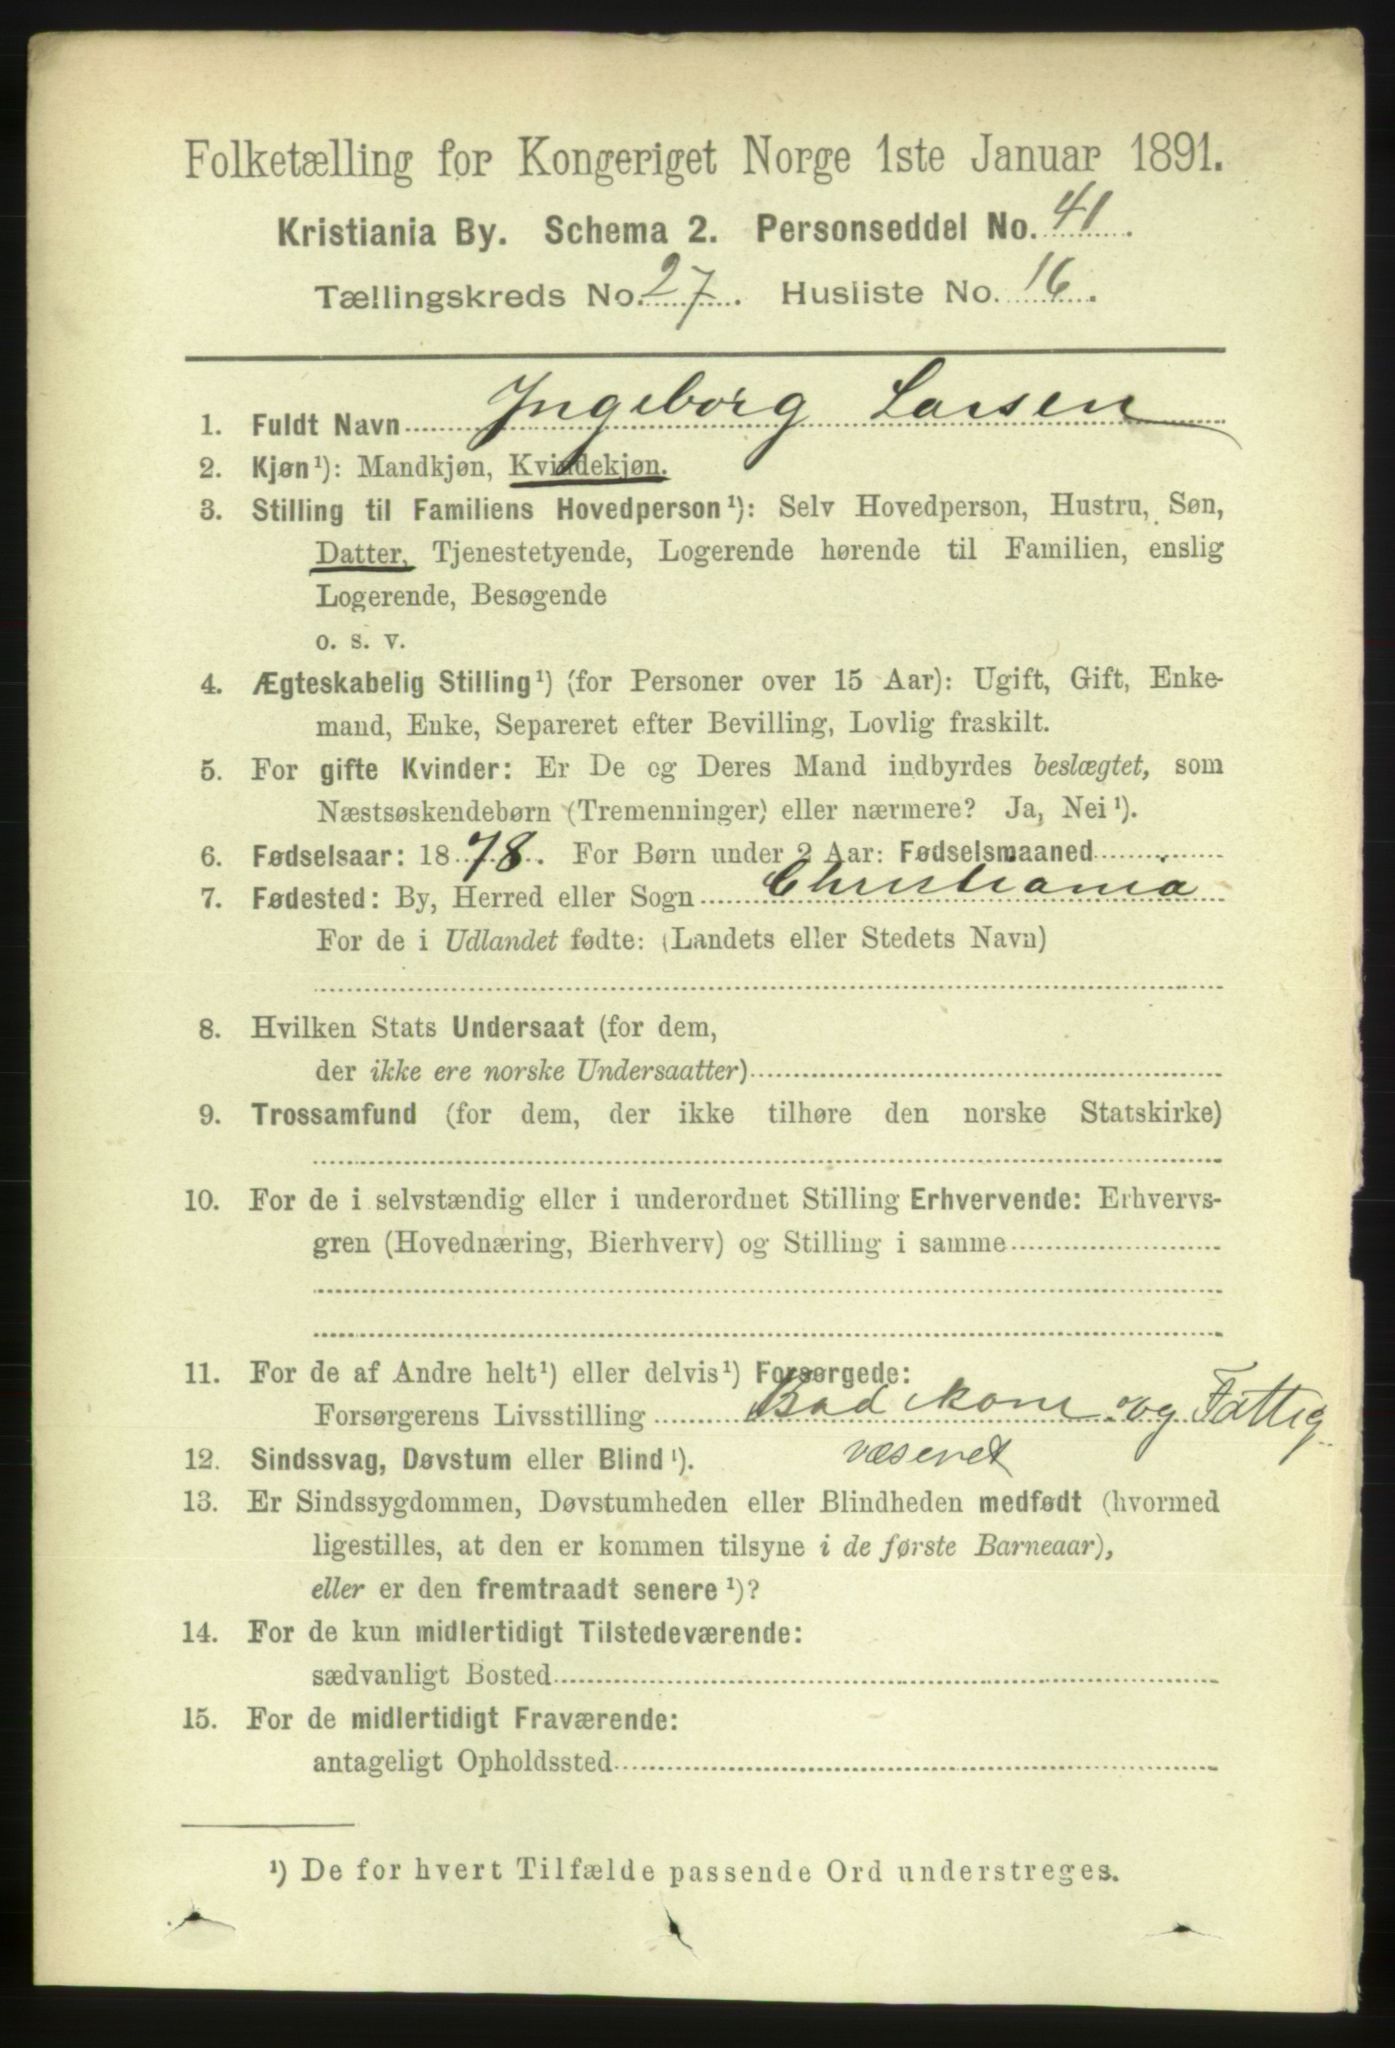 Folketælling for Kongeriget Norge 1ste Januar 1891.
Kristiania By. Schema 2. Personseddel No. 41.
Tællingskreds No. 27. Husliste No. 16.
1. Fuldt Navn Ingeborg Larsen
2. Kjøn¹): Mandkjøn, Kvindekjøn.
3. Stilling til Familiens Hovedperson¹): Selv Hovedperson, Hustru, Søn,
Datter, Tjenestetyende, Logerende hørende til Familien, enslig
Logerende, Besøgende
o. s. v.
4. Ægteskabelig Stilling¹) (for Personer over 15 Aar): Ugift, Gift, Enke-
mand, Enke, Separeret efter Bevilling, Lovlig fraskilt.
5. For gifte Kvinder: Er De og Deres Mand indbyrdes beslægtet, som
Næstsøskendebørn (Tremenninger) eller nærmere? Ja, Nei¹).
6. Fødselsaar: 1878. For Børn under 2 Aar: Fødselsmaaned
7. Fødested: By, Herred eller Sogn Christiania
For de i Udlandet fødte: (Landets eller Stedets Navn)
8. Hvilken Stats Undersaat (for dem,
der ikke ere norske Undersaatter)
9. Trossamfund (for dem, der ikke tilhøre den norske Statskirke)
10. For de i selvstændig eller i underordnet Stilling Erhvervende: Erhvervs-
gren (Hovednæring, Bierhverv) og Stilling i samme
11. For de af Andre helt¹) eller delvis¹) Forsørgede:
Forsørgerens Livsstilling Badekone og Fattig
12. Sindssvag, Døvstum eller Blind¹). væsenet
13. Er Sindssygdommen, Døvstumheden eller Blindheden medfødt (hvormed
ligestilles, at den er kommen tilsyne i de første Barneaar),
eller er den fremtraadt senere¹)?
14. For de kun midlertidigt Tilstedeværende:
sædvanligt Bosted
15. For de midlertidigt Fraværende:
antageligt Opholdssted
¹) De for hvert Tilfælde passende Ord understreges.